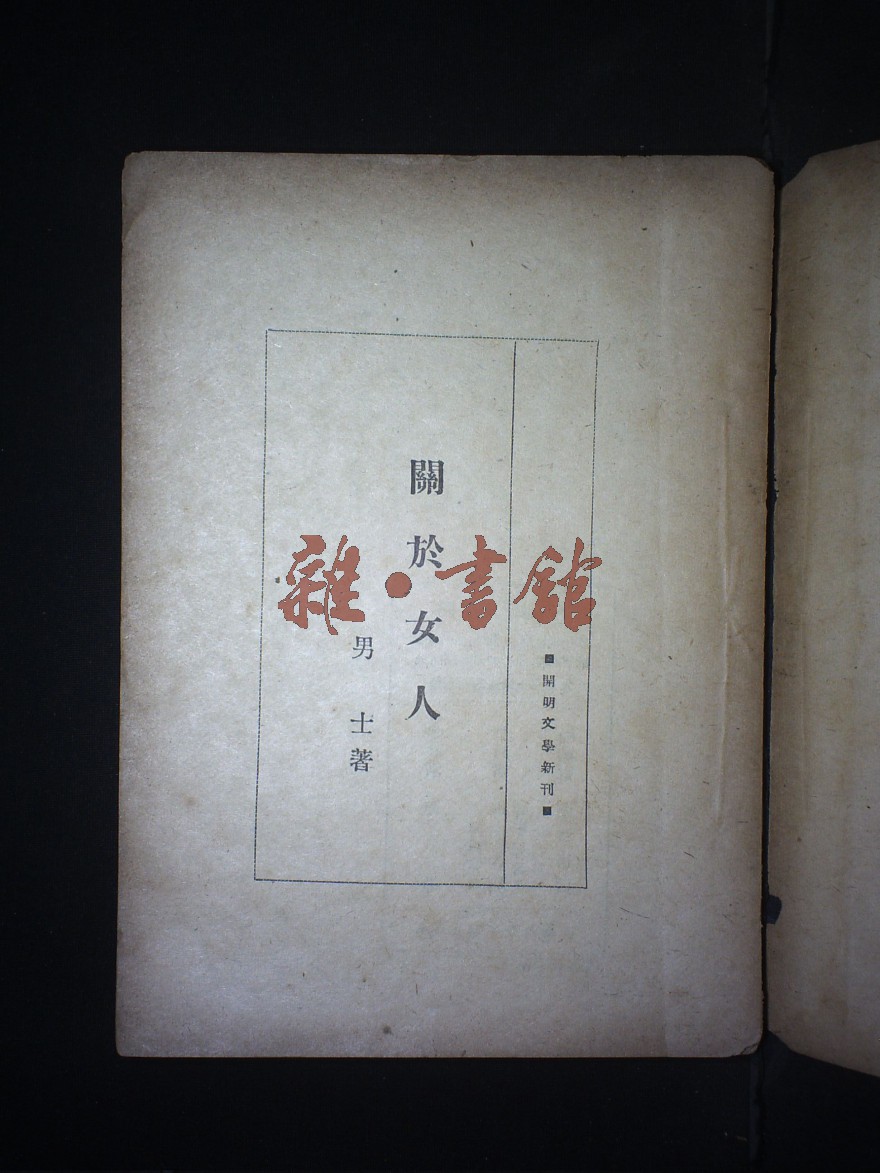 ■開明文學新刊■
關於女人
男士著
雜·書館